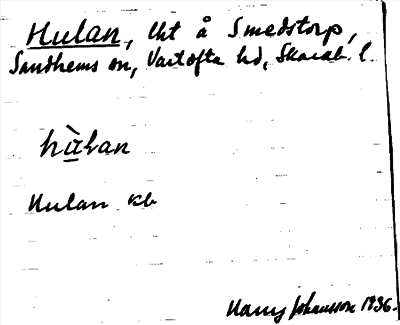 Hulan, lht å Smedstorp,
Sandhems sn, Vartofta hd, Skarab. l.
hùlan
Hulan kb
Harry Johansson 1936.